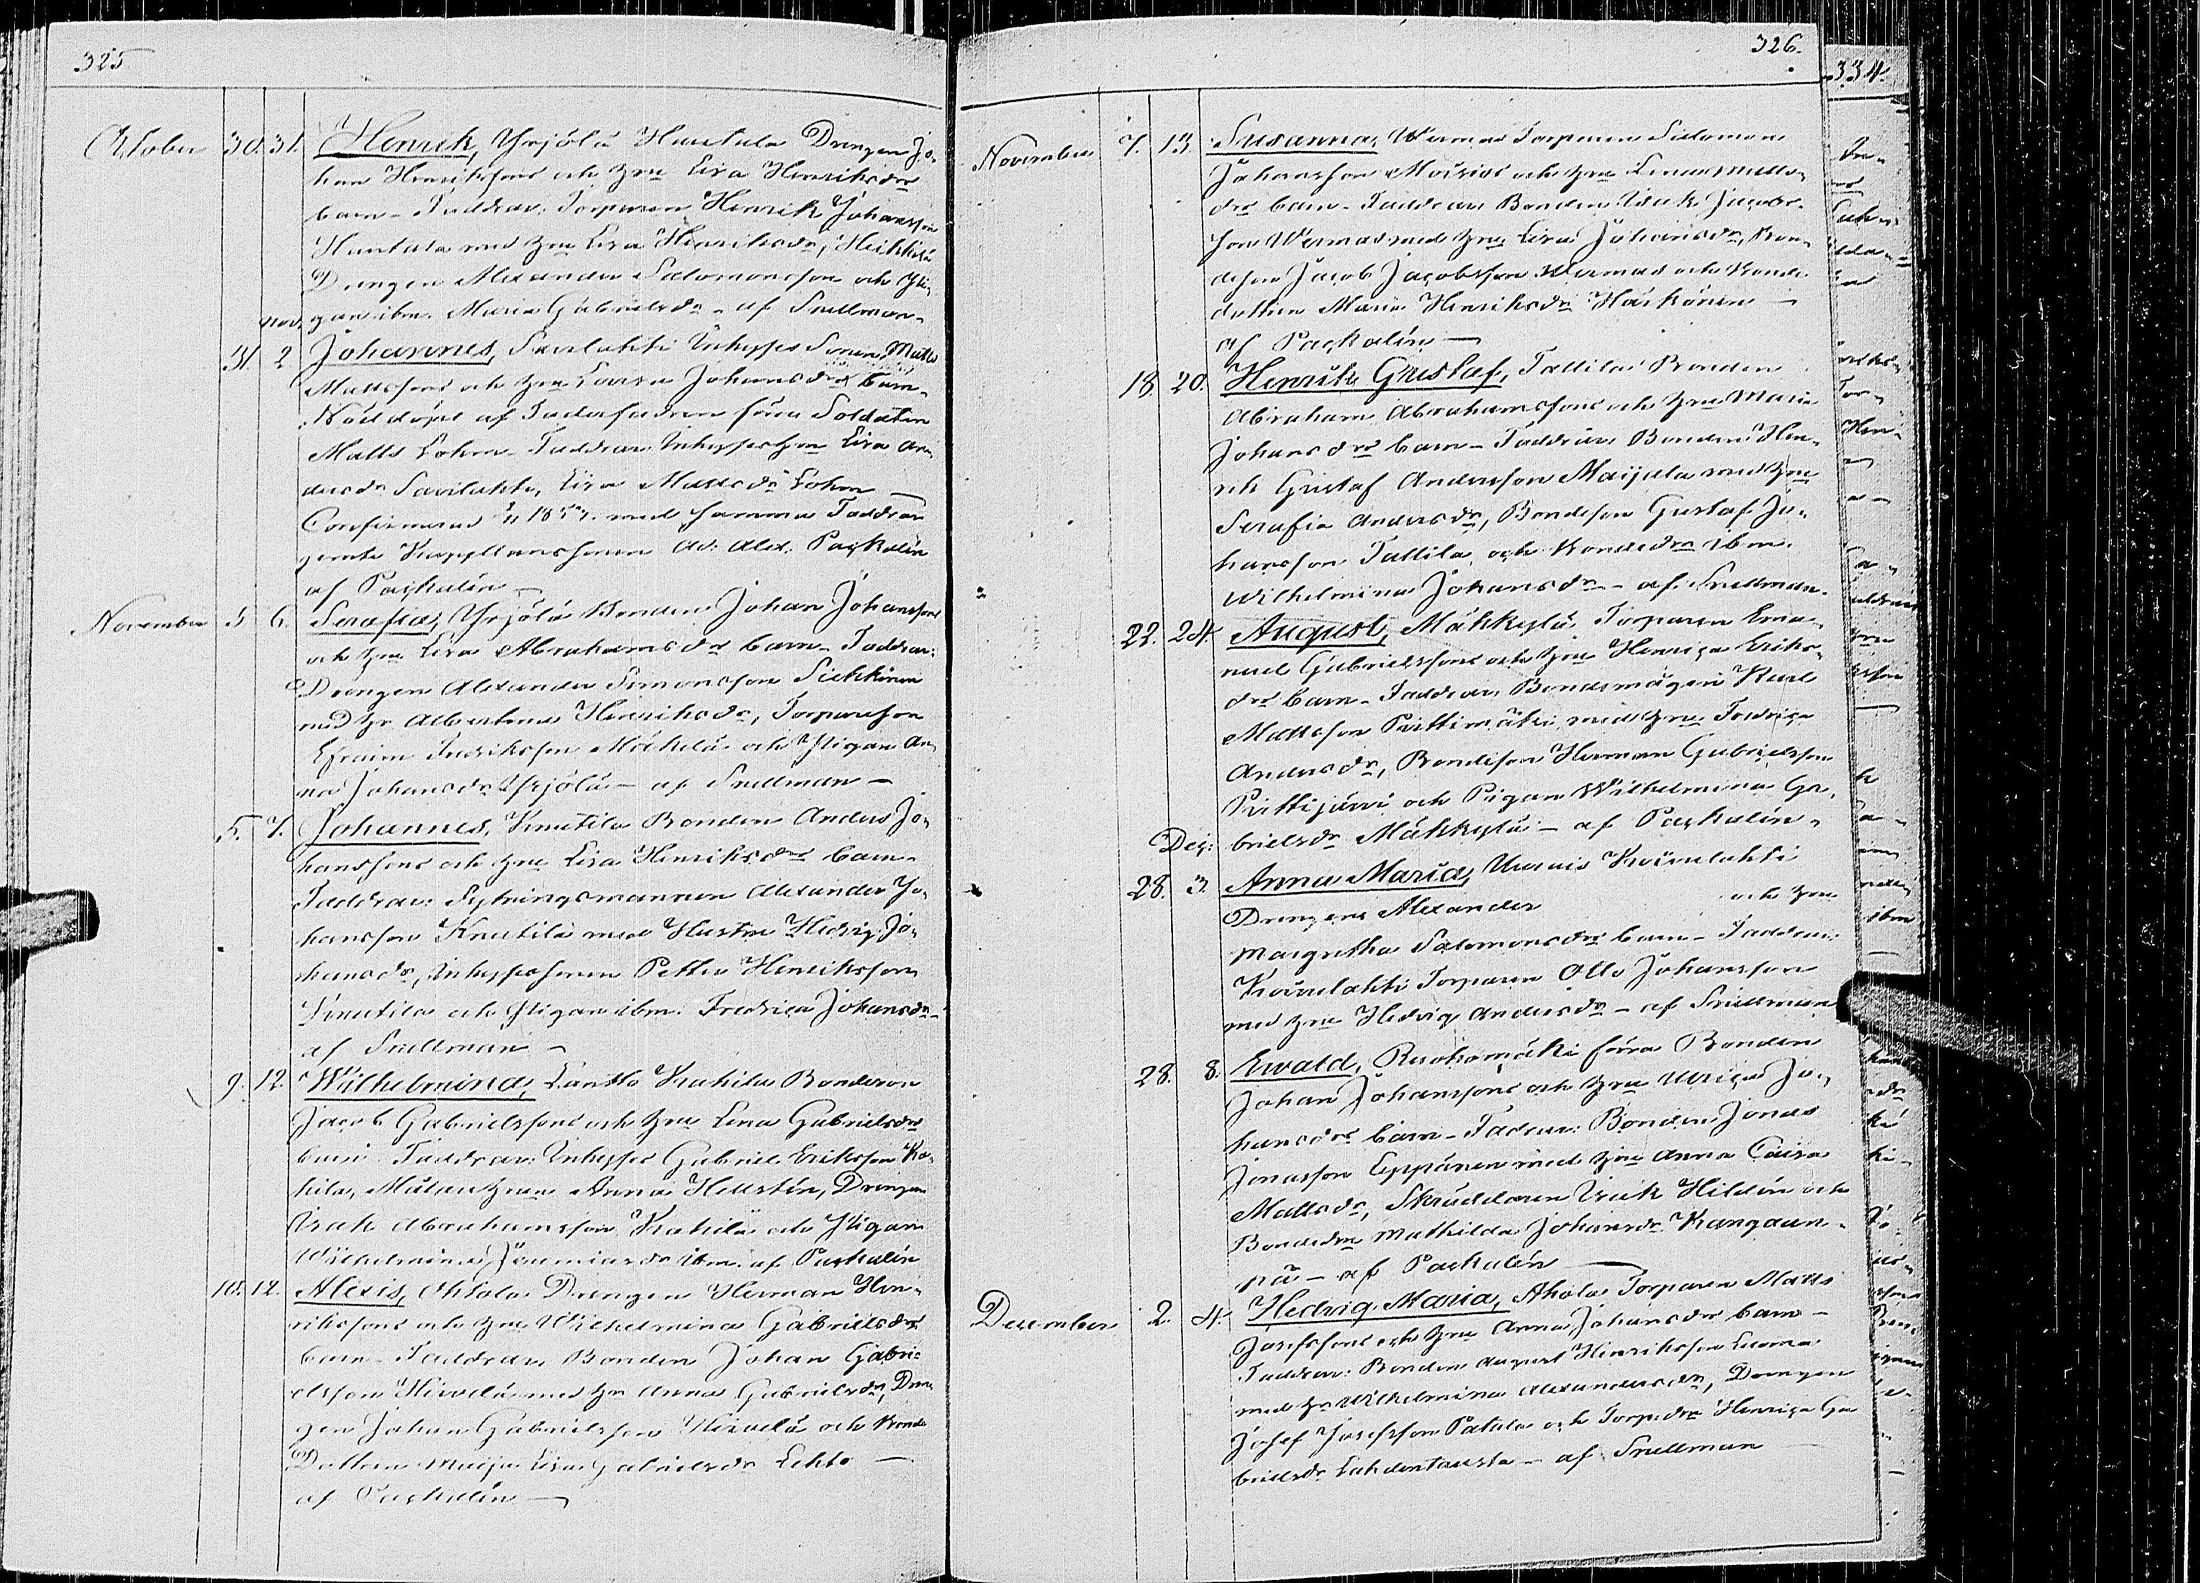 325
October 30. 31. Henrik, Yrjölä Hantula Drengen Jo-
han Henrikssons och hru Lisa Henriksdrs
barn - Faddrar: Torparen Henrik Johansson
Hantula med hru Lisa Henriksdr, Heikkilä
Drengen Alexander Salomonsson och Pi-
nov. gan ibm. Maria Gabrielsdr - af Snellman -
31. 2 Johannes, Savilahti Inhyses Sonen, Matts
Mattssons och hru Lovisa Johansdrs barn -
Nöddöpt af Faderfadren förra Soldaten
Matts Lohm - Faddrar Inhyses hru Lisa An-
dersdr Savilahti, Lisa Mattsdr Lohm
Confirmerad med samma Faddrar
jemte Kapellanssonen Ad. Alex. Paçkalén
af Paçkalén -
November 5 6. Serafia, Yrjölä Bonden Johan Johanssons
och hru Lisa Abrahamsdrs barn - Faddrar:
Drengen Alexander Simonsson Sikkinen
med hr Albertina Henriksdr, Torpareson
Efraim Fredriksson Mäkelä och Pigan An-
na Johansdr Yrjölä - af Snellman -
5. 7. Johannes, Knutila Bonden Anders Jo-
hanssons och hru Lisa Henriksdrs barn -
Faddrar: Sytningsmannen Alexander Jo-
hansson Knutila med Hustru Hedvig Jo-
hansdr, Inhysessonen Petter Henriksson
Knutila och Pigan ibm. Fredrica Johansdr -
af Snellman -
9. 12. Wilhelmina, Kahila Bondeson
Jacob Gabrielssons och hru Lena Gabrielsdrs
barn - Faddrar: Inhyses Gabriel Eriksson Ka-
hila, Målare hrun Anna Hellstén, Drengen
Isak Abrahamsson Kahila och Pigan
Wilhelmina Jeremiasdr ibm. af Paçkalén
10. 12. Alexis, Ahtola Drengen Herman Hen-
rikssons och hru Wilhelmina Gabrielsdrs
barn - Faddrar, Bonden Johan Gabri-
elsson Hirvelä med hr Anna Gabrielsdr, Dren-
gen Johan Gabrielsson Hirvelä och Bonde
Dottern Maija Lisa Gabrielsdr Lehto -
af Paçkalén -
326.
November 7. 13 Susanna, Wermas Torparen Salomon
Johansson Moisios och hru Lenas Matts-
drs barn - Faddrar Bonden Isak Jacobs-
son Wermas med hru Lisa Johansdr, Bon-
deson Jacob Jacobsson Wermas och Bonde
dottren Maria Henriksdr Härkönen -
af Paçkalén -
18. 20. Henrik Gustaf, Tallila Bonden
Abraham Abrahamssons och hru Maria
Johansdrs barn - Faddrar Bonden Hen-
rik Gustaf Andersson Maijala med hru
Serafia Andersdr, Bondeson Gustaf Jo-
hansson Tallila och Bondedrn ibm.
Wilhelmina Johansdr - af Snellman -
22. 24. August, Mähkylä Torparen Ema-
nuel Gabrielssons och hru Henrica Eriks-
drs barn - Faddrar Bondemågen Karl
Mattsson Prittimäki med hru Fredrica
Andersdr, Bondeson Herman Gabrielsson
Prittijärvi och Pigan Wilhelmina Ga-
Dec: brielsdr Mähkylä - af Paçkalén -
28. 3. Anna Maria, Koivulahti
Drengens Alexander och hru
Margretha Salomonsdrs barn - Faddrar:
Koivulahti Torparen Otto Johansson
med hru Hedvig Andersdr - af Snellman
28. 8. Ewald, Ruohomäki förra Bonden
Johan Johanssons och hru Ulrica Jo-
hansdrs barn - Faddrar: Bonden Jonas
Jonasson Eppänen med hru Anna Caisa
Mattsdr, Skräddaren Isak Hildén och
Bondedrn Mathilda Johansdr Kangaan-
pä - af Paçkalén -
December 2. 4. Hedvig Maria, Ahola Torparen Matts
Josefssons och hru Anna Johansdrs barn -
Faddrar: Bonden August Henriksson Luoma
med hr Wilhelmina Alexandersdr, Drengen
Josef Josefsson Patala och Torpedrn Henrica Ga
brielsdr Lahdentausta - af Snellman
334.